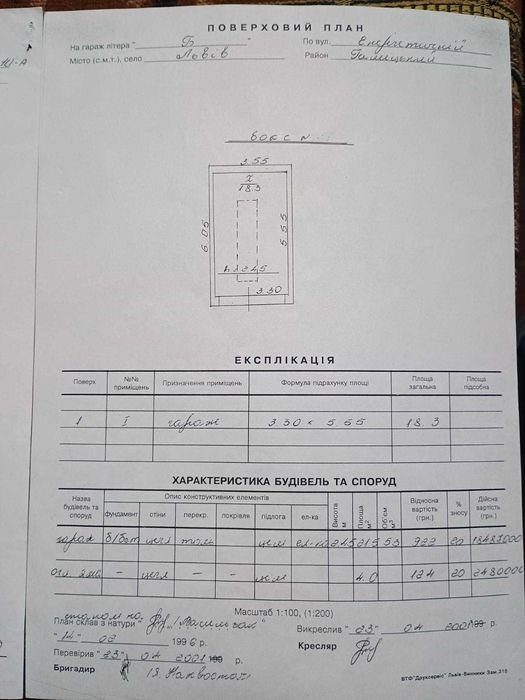 ПОВЕРХОВИЙ ПЛАН
На гараж літера " Б "
По вул. Енергетичній
Місто (с.м.т.), село Львів
Район Галицький
бокс N
3.55
I
18.3
6.05
5.55
h=2.45
3.30
ЕКСПЛІКАЦІЯ
Поверх №№ приміщень Призначення приміщень Формула підрахунку площі Площа загальна Площа підсобна
1 I гараж 3.30 x 5.55 18.3
ХАРАКТЕРИСТИКА БУДІВЕЛЬ ТА СПОРУД
Назва будівель та споруд Опис конструктивних елементів Висота м Площа м² Об'єм м³ Відносна вартість (грн.) % зносу Дійсна вартість (грн.)
фундамент стіни перекр. покрівля підлога ел-ка
гараж б/бет цегл цем ел-ка 2.45 21.5 53 922 20
огл. яма – цегл – – цем 4.0 124 20
Масштаб 1:100, (1:200)
План склав з натури
Викреслив " 23 " 04 2001
" 14 " 02 1996 р.
Кресляр
Перевірив " 23 " 04 2001 р.
Бригадир
ВТФ"Друксервіс" Львів-Винники Зам.315